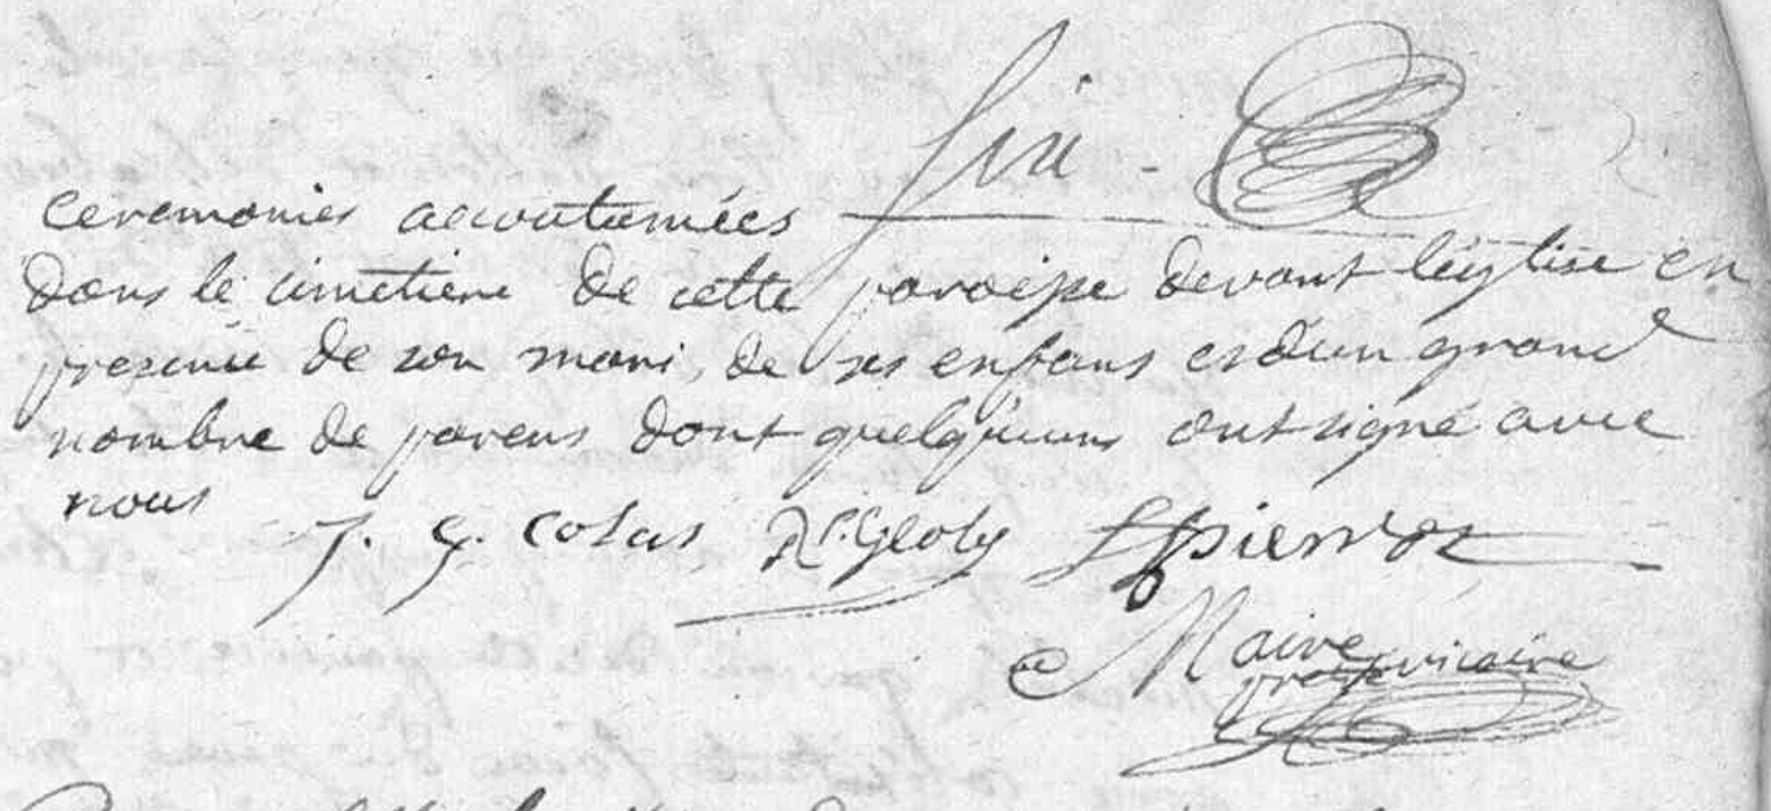 six -
ceremonies accoutumées
dans le cimetiere de cette paroisse devant leiglise en
presence de son mari, de ses enfans et d'un grand
nombre de parens dont quelqu'uns ont signé avec
nous J. G. Colas
Maire
pretre vicaire